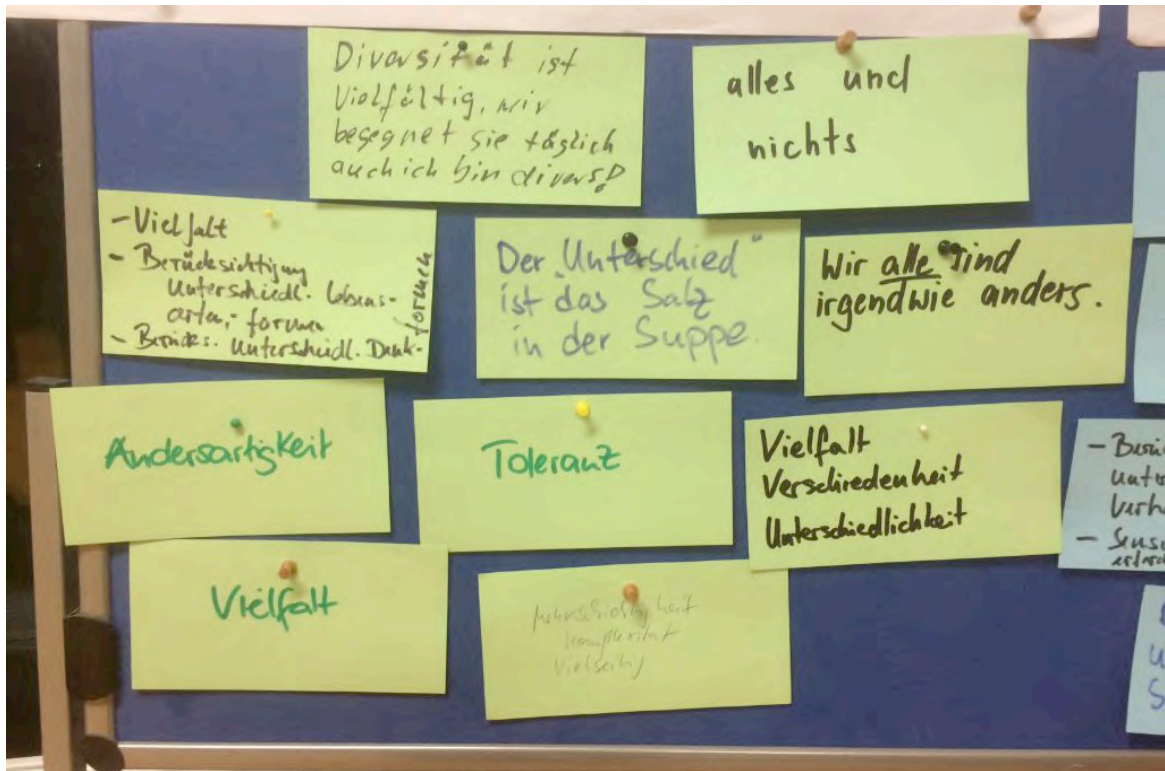 Diversität ist
vielfältig, mir
begegnet sie täglich
auch ich bin divers!
alles und
nichts
- Vielfalt
- Berücksichtigung
Unterschiedl. Lebens-
arten, - formen
- Berücks. Unterschiedl. Denk-
formen
Der „Unterschied“
ist das Salz
in der Suppe.
Wir alle sind
irgendwie anders.
Andersartigkeit
Toleranz
Vielfalt
Verschiedenheit
Unterschiedlichkeit
Vielfalt
Mehrschichtigkeit
Komplexität
Vielseitig